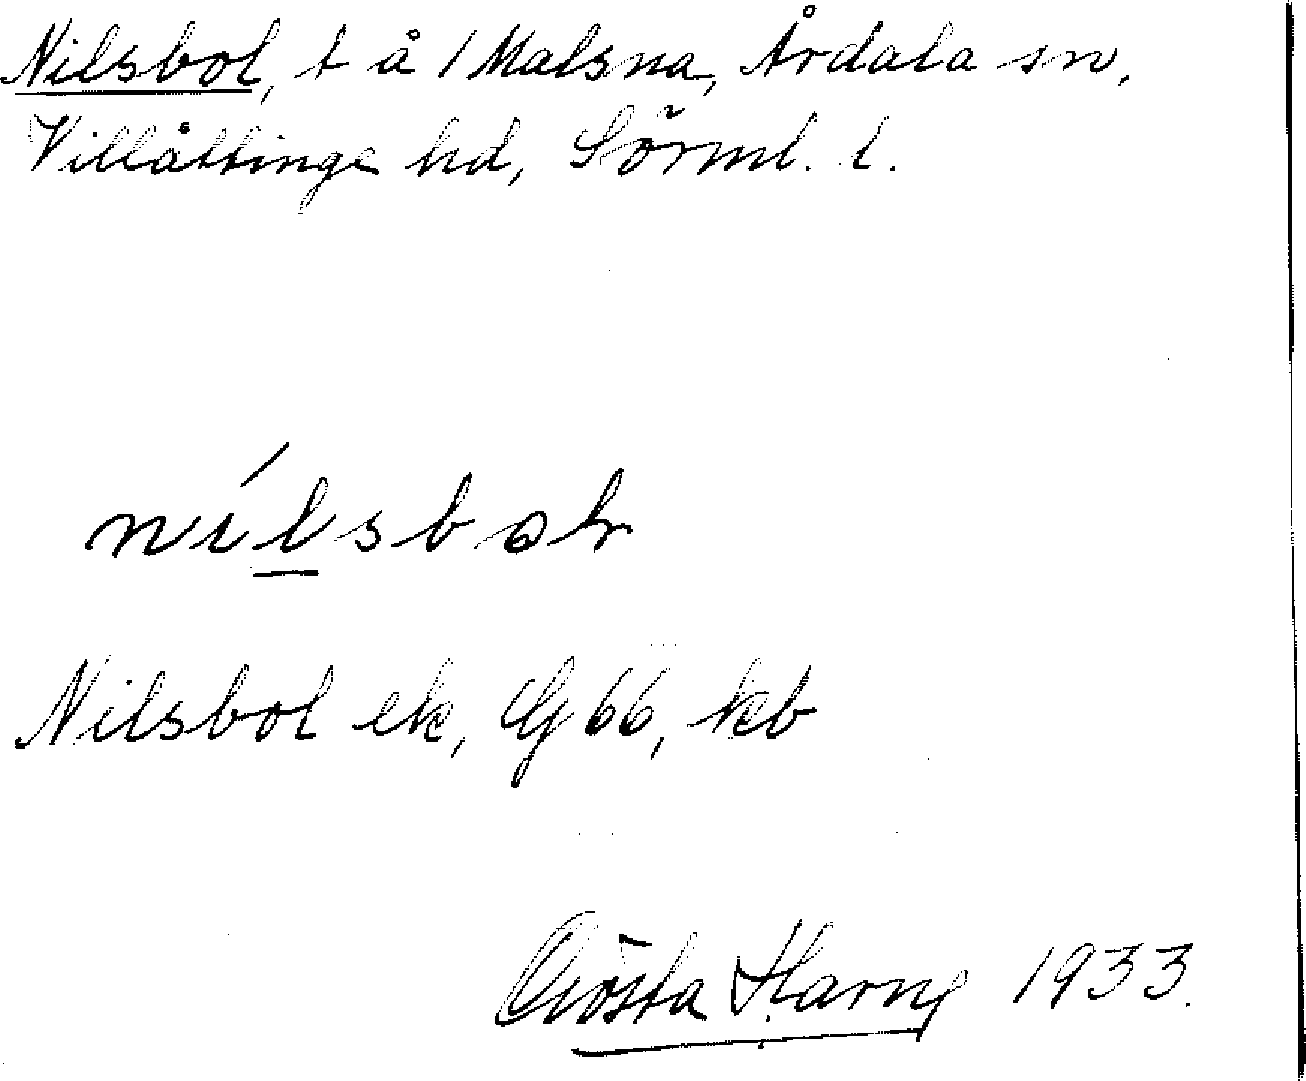 Nilsbol, t å 1 Malsna, Årdala sn,
Villåttinge hd, Sörml. l.
nílsbol
Nilsbol ek, G 66, kb
Gösta Harng 1933.